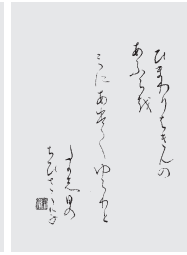 ひまわりはきんの
あふらを
みにあひてゆらりと
たかし日の
ちひさゝよ